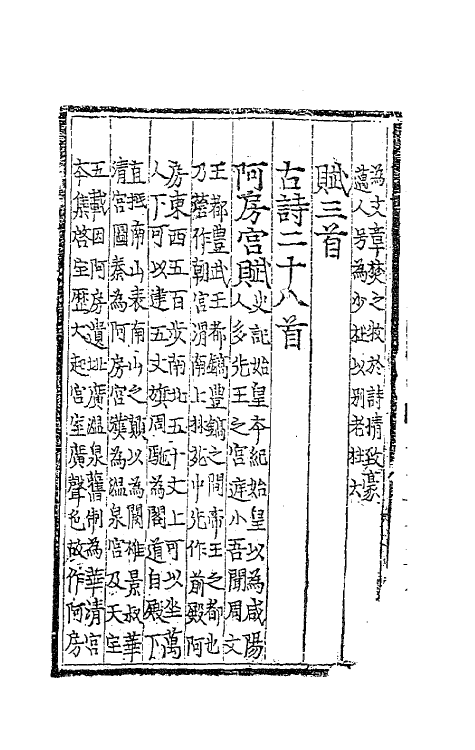 為文章焚之牧於詩情致豪
邁人号為少杜以别老杜
賦三首
古詩二十八首
阿房宮賦
史記始皇本紀始皇以為咸陽
人多先王之宮庭小吾聞周文
王都豊武王都鎬豊鎬之間帝王之都也
乃營作朝宮渭南上林苑中先作前殿阿
房東西五百步南北五十丈上可以坐萬
人下可以建五丈旗周馳為閣道自殿下
直抵南山表南山之顚以為闕雍景叔華
清宮圖秦為阿房宮漢為温泉宮及天宝
五載因阿房遺址廣温泉舊制為華清宮
本集啓宝歷大起宮室廣聲色故作阿房